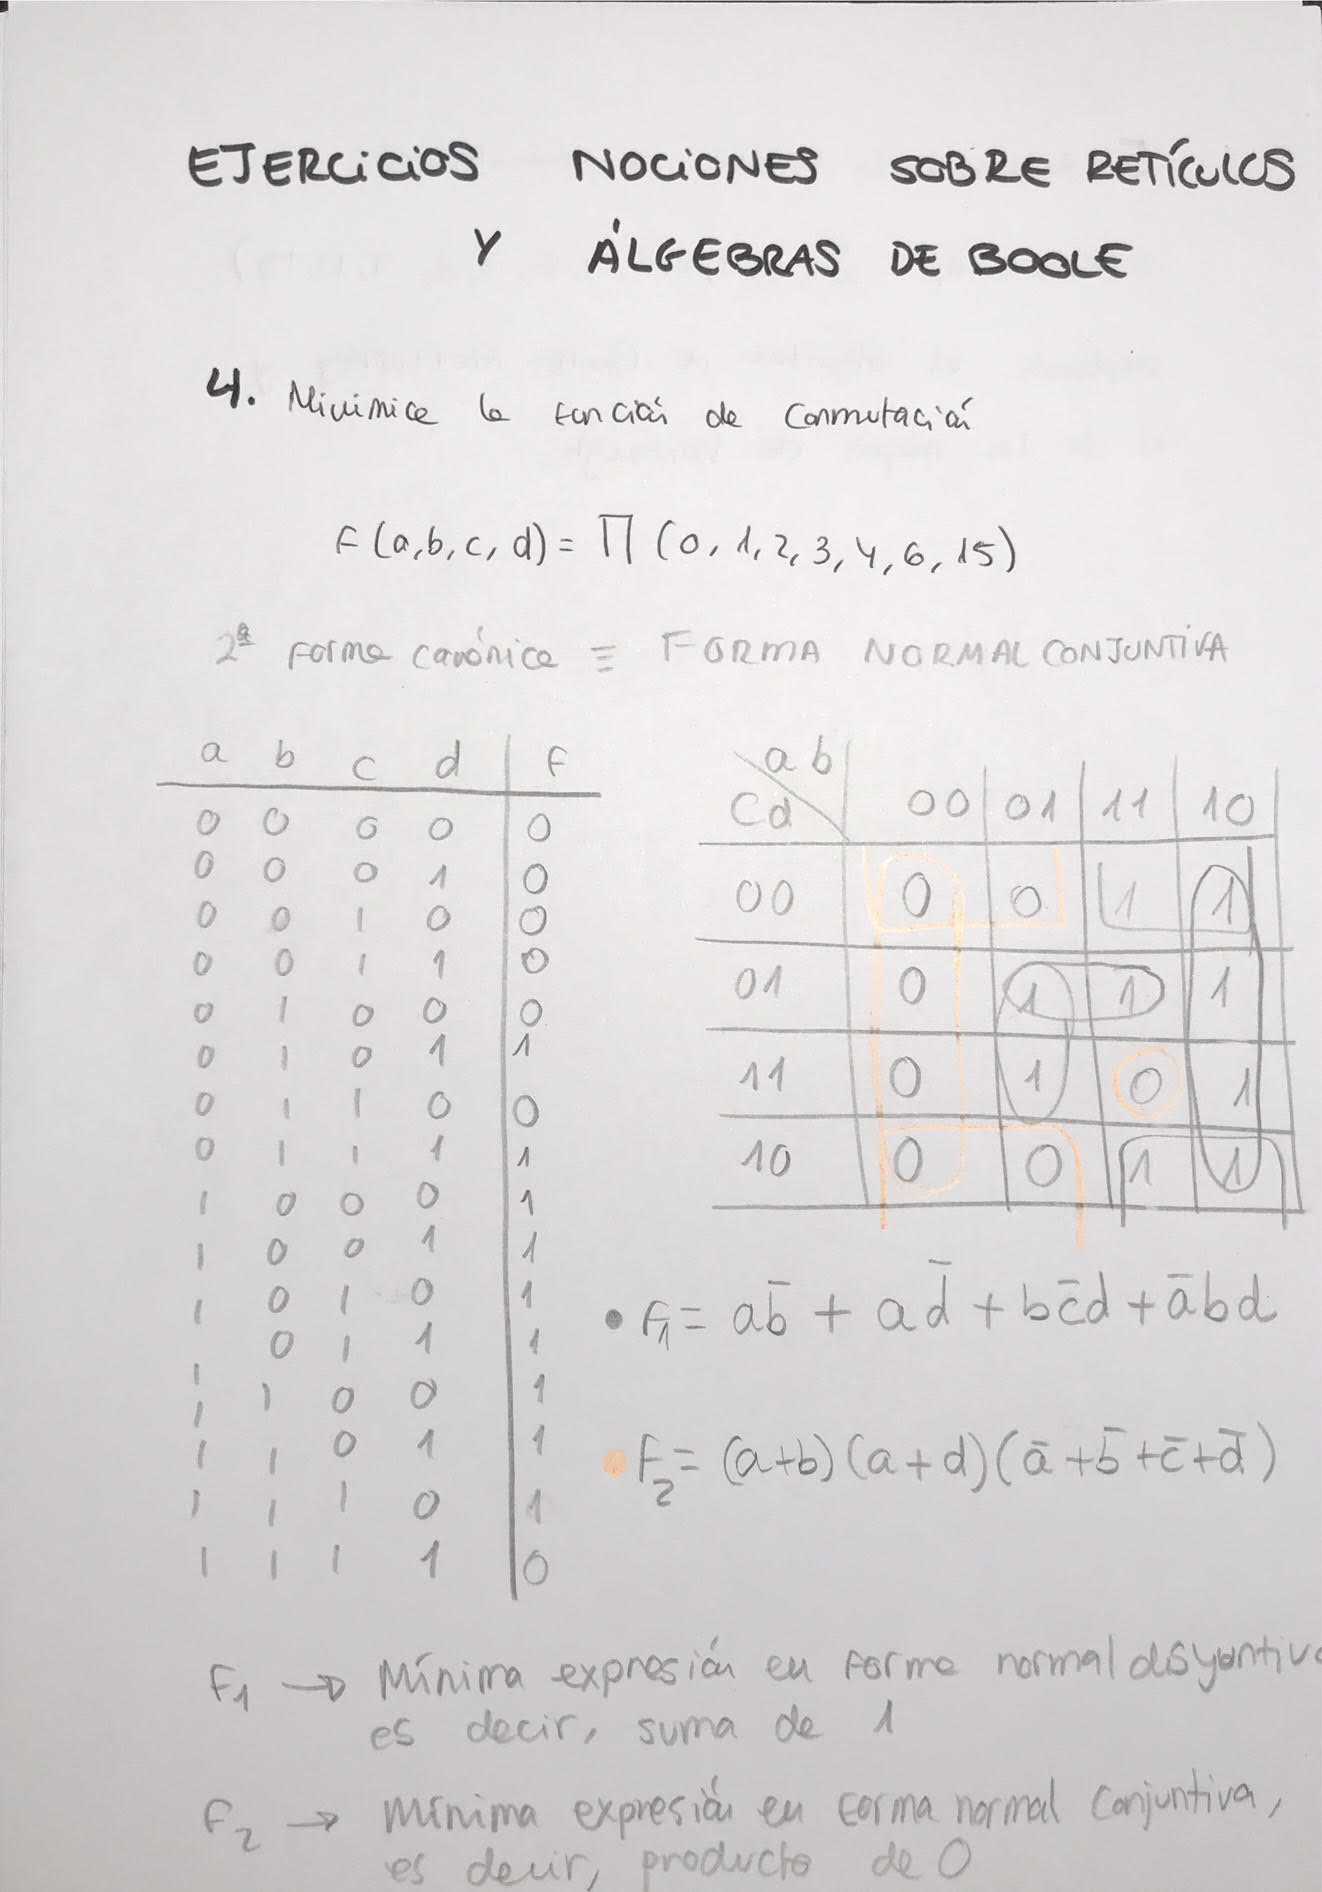 EJERCICIOS NOCIONES SOBRE RETÍCULOS
Y ÁLGEBRAS DE BOOLE
4. Minimice la función de conmutación
F (a,b,c,d) = ∏ (0, 1, 2, 3, 4, 6, 15)
2ª forma canónica ≡ FORMA NORMAL CONJUNTIVA
a b c d F
0 0 0 0 0
0 0 0 1 0
0 0 1 0 0
0 0 1 1 0
0 1 0 0 0
0 1 0 1 1
0 1 1 0 0
0 1 1 1 1
1 0 0 0 1
1 0 0 1 1
1 0 1 0 1
1 0 1 1 1
1 1 0 0 1
1 1 0 1 1
1 1 1 0 1
1 1 1 1 0
ab
cd 00 01 11 10
00 0 0 1 1
01 0 1 1 1
11 0 1 0 1
10 0 0 1 1
• F₁ = ab̄ + ad̄ + bc̄d + ābd
• F₂ = (a+b)(a+d)(ā+b̄+c̄+d̄)
F₁ → Mínima expresión en forma normal disyuntiva
es decir, suma de 1
F₂ → Mínima expresión en forma normal conjuntiva,
es decir, producto de 0